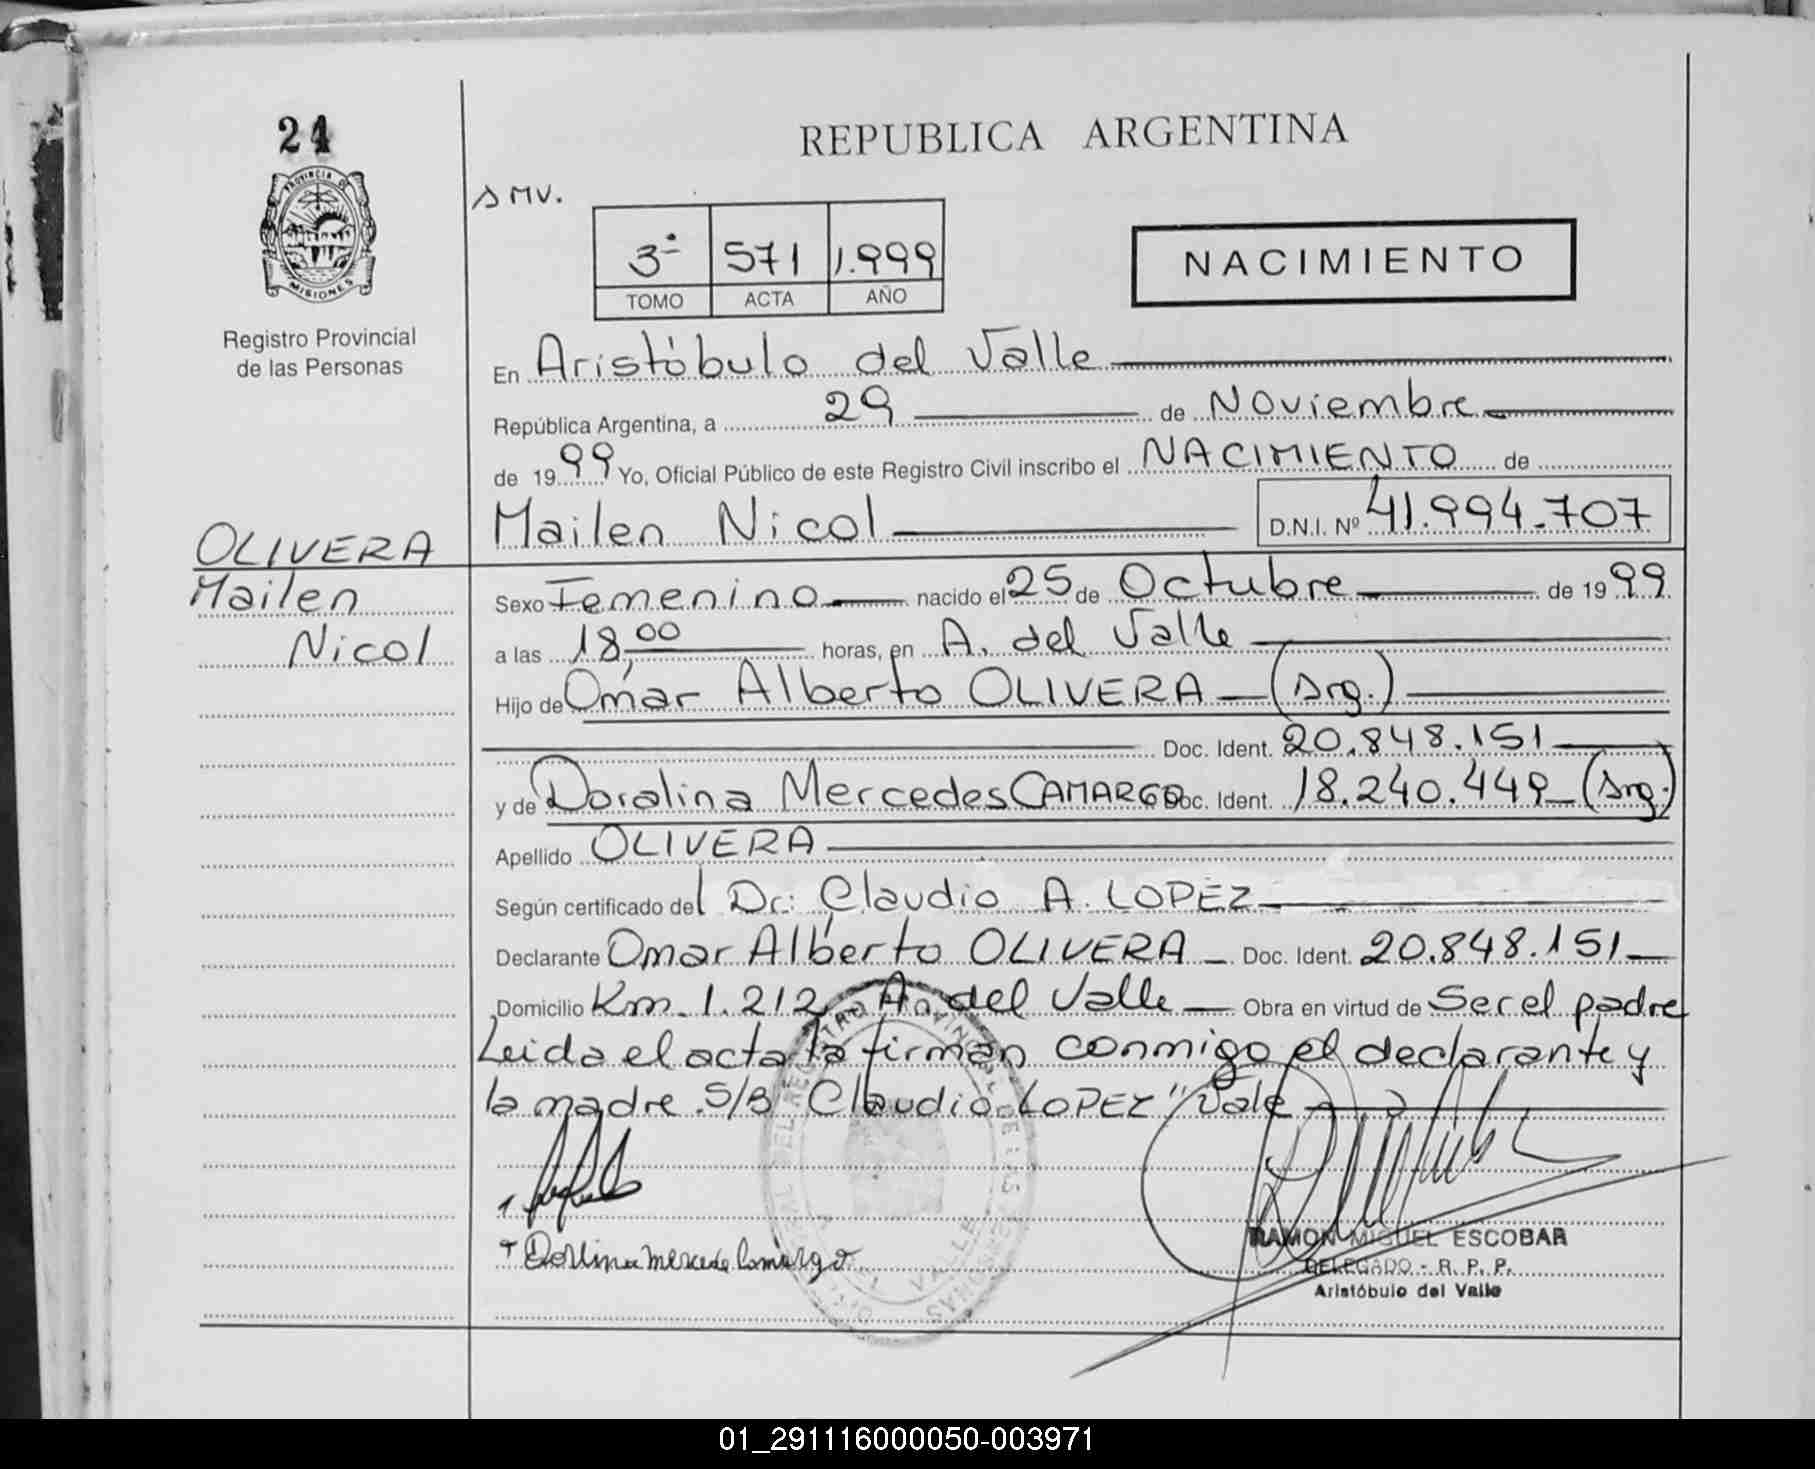 24
PROVINCIA DE
MISIONES
Registro Provincial
de las Personas
REPUBLICA ARGENTINA
3ª 571 1.999
TOMO ACTA AÑO
NACIMIENTO
En Aristóbulo del Valle
República Argentina, a 29 de Noviembre
de 1999 Yo, Oficial Público de este Registro Civil inscribo el NACIMIENTO de
Mailen Nicol D.N.I. Nº 41.994.707
OLIVERA
Mailen
Nicol
Sexo Femenino nacido el 25 de Octubre de 1999
a las 18,00 horas, en A. del Valle
Hijo de Omar Alberto OLIVERA (Arg.)
Doc. Ident. 20.848.151
y de Doralina Mercedes CAMARGO Doc. Ident. 18.240.449 (Arg.)
Apellido OLIVERA
Según certificado del Dr: Claudio A. LOPEZ
Declarante Omar Alberto OLIVERA Doc. Ident. 20.848.151
Domicilio Km. 1.212 A. del Valle Obra en virtud de Ser el padre
Leida el acta la firman conmigo el declarante y
la madre S/B "Claudio LOPEZ" Vale
Mercede Camargo
RAMON MIGUEL ESCOBAR
DELEGADO - R. P. P.
Aristóbulo del Valle
01_291116000050-003971